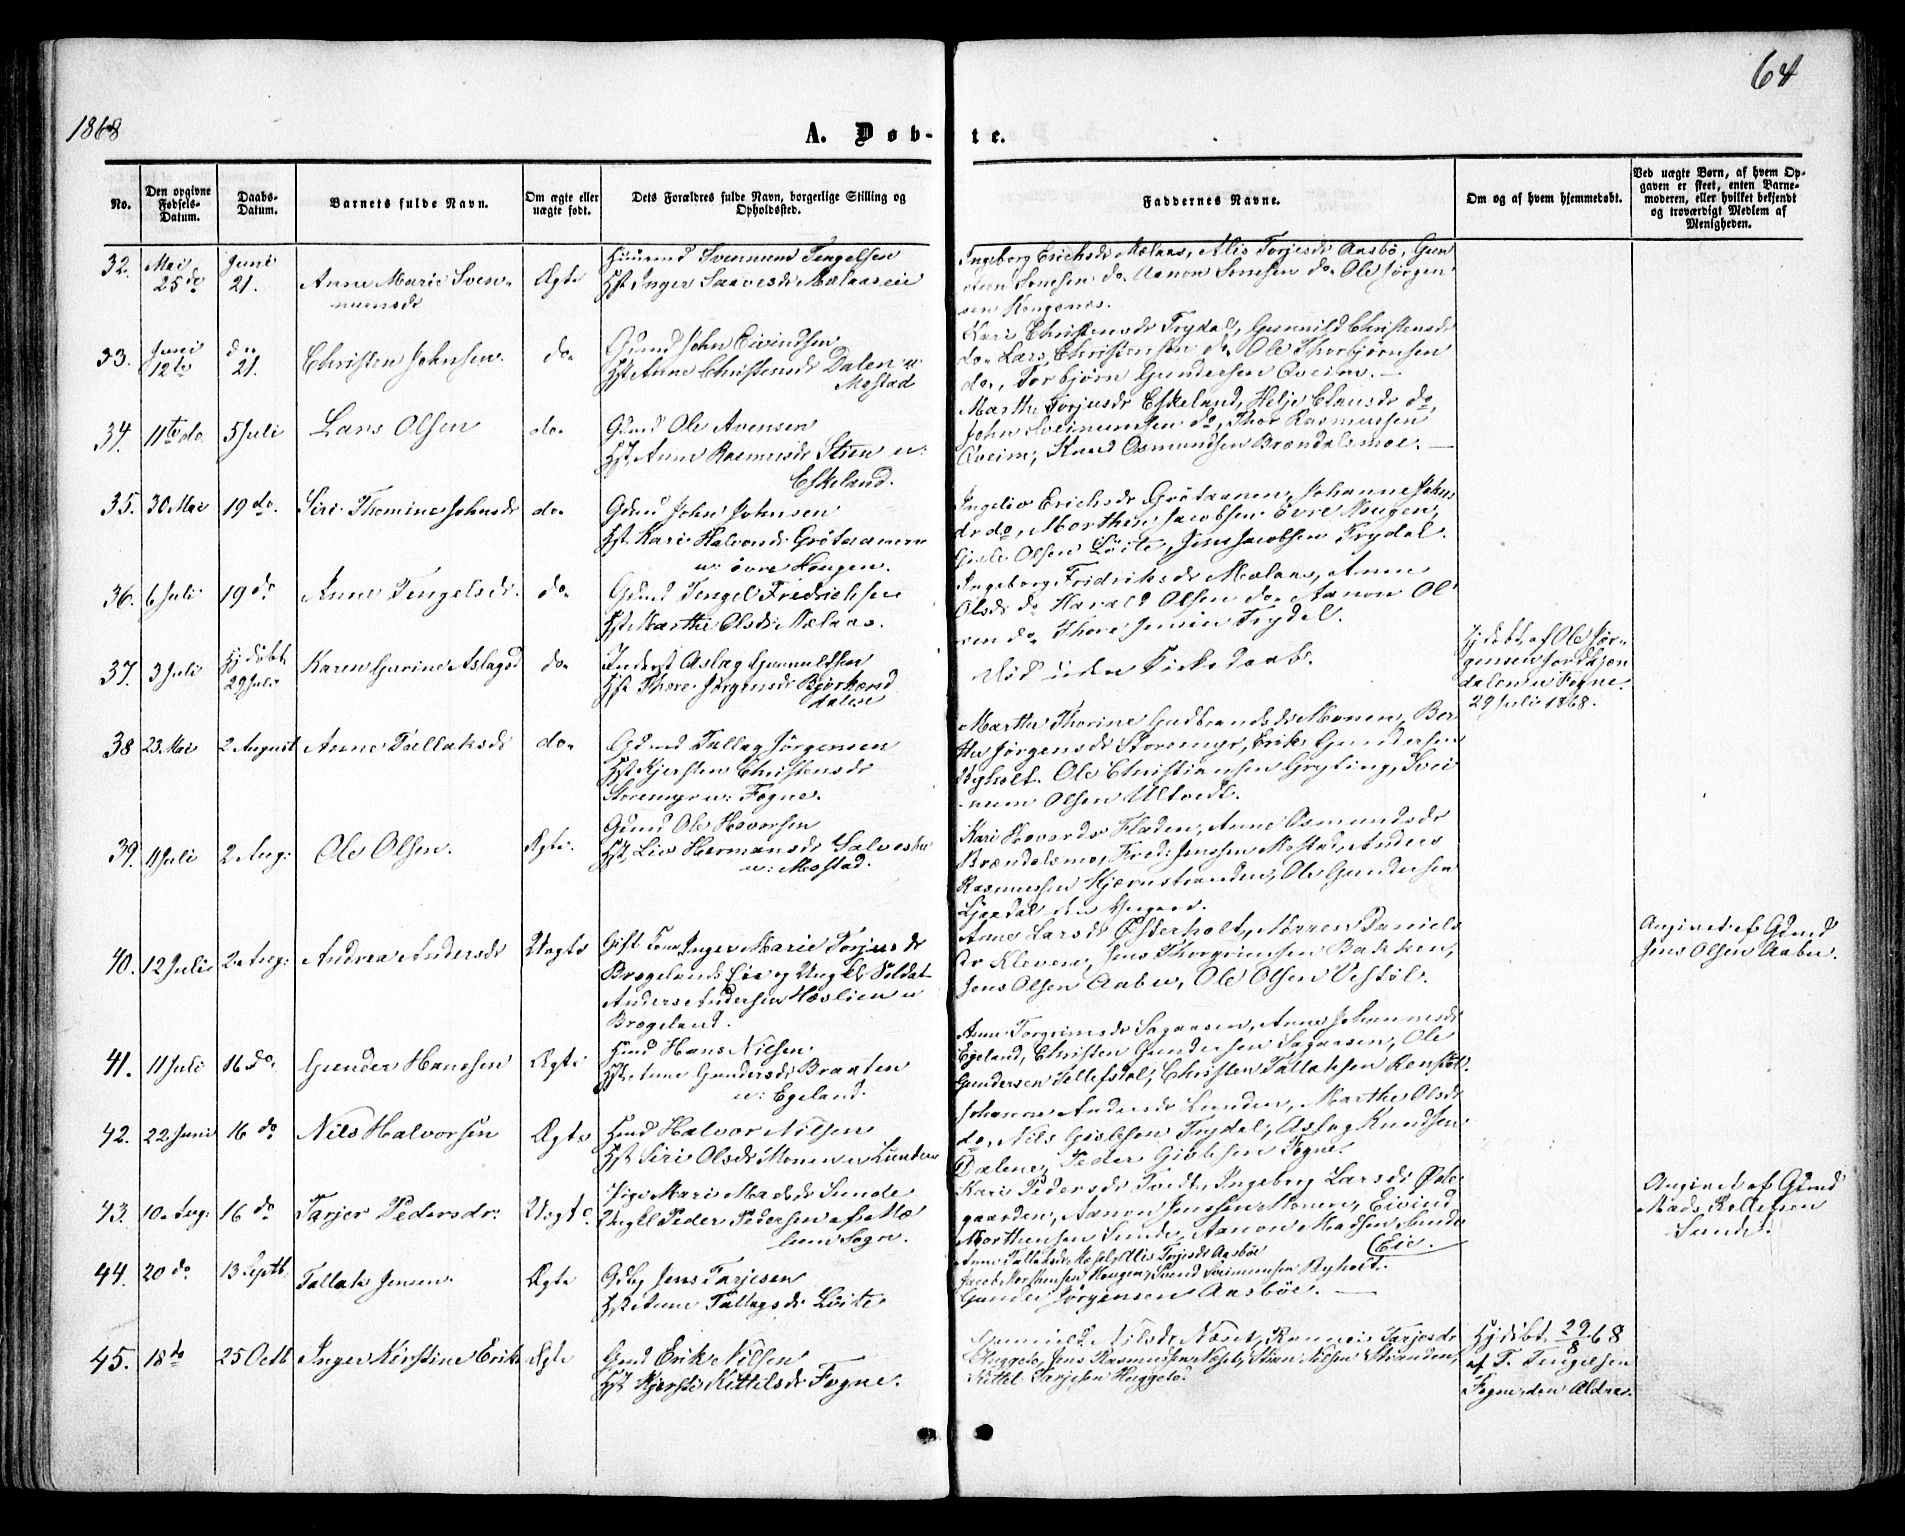 1868
64
A. Døb-
te.
No.
Den opgivne Fødsels-Datum.
Daabs-Datum.
Barnets fulde Navn.
Om ægte eller uægte født.
Dets Forældres fulde Navn, borgerlige Stilling og Opholdssted.
Faddernes Navne.
Om og af hvem hjemmedøbt.
Ved uægte Børn, af hvem Opgaven er skeet, enten Barnemoderen, eller hvilket bekjendt og troværdigt Medlem af Menigheden.
32. Mai 25de
Juni 21.
Anne Marie Svennumsdr
Ægte
Svennum Tengelsen
Hst Inger Mælaaseie
Ingeborg Erichsdr Mælaas, Alis Torjesdr Aasbø, Gun
do Aanon do Ole Jørgen
sen
33. Juni 12te
do 21.
Christen Johnsen.
do
Gmd John Eivindsen
Hst Anne Christensdr Dalen u:
Mostad
Kari Christensdr Trydal, Gunnild Christensdr
do Lars Christensen do Ole Thorbjørnsen
do, Torbjørn Gundersen Qveim.
34. 11te do
5 Juli
Lars Olsen
do
Gmd Ole Avensen
Hst Anne Rasmusdr Steen u:
Eskeland.
Marthe Torjusdr Eskeland, Helje do,
John do, Thor Rasmussen
Qveim, Knud Osmundsen Brændalsmoe.
35. 30 Mai
19 do
Siri Thomine Johnsdr
do
Gmd John Johnsen
Hst Kari Halvorsdr
u: øvre Hougen.
Erichsdr Johanne Johns
dr do, Morthen Jacobsen Øvre Hougen,
Olsen Løite, Jens Jacobsen Trydal.
36. 6 Juli
19 do
Anne Tengelsdr.
do
Gmd Tengel Fredrichsen
Hst Marthe Olsdr Mælaas.
Ingeborg Fridriksdr Mælaas, Anne
Olsdr do Harald Olsen do Aanon Ol
sen do Thore Jensen Trydal.
37. 3 Juli
Hj døbt
29 Juli
Karen Gurine Aslagsd
do
Inderst Aslag Gunnuldsen
Hst Thore Jørgensdr
dalen
Død uden Kirkedaab.
Hj døbt af Ole Jør-
gensen
dalen u Fogne.
29 Juli 1868.
38 23 Mai
2 August
Anne Tallaksdr
do
Gmd Tallag Jørgensen
Hst Kjersten Christensdr
Storemyr u: Fogne.
Marthe Thorine Gudbrandsdr Monen, Ber
the Jørgensdr Storemyr, Erik Gundersen
Ryholt. Ole Christiansen Gryting, Svei
num Olsen Ultvedt.
39. 11 Juli
2 Aug:
Ole Olsen.
Ægte.
Gmd Ole Havorsen
Hst Liv Hermansdr
u: Mostad.
Kari Hovordsdr Fladen, Anne Osmundsdr
Brændalsmo, Fred: Jensen Mostad, Anders
Rasmussen Hjernstranden, Ole Gundersen
40. 12 Juli
2 Aug:
Andrea Andersdr
Uægte
Gift Kone Inger Marie Torjusdr
Brøgelands Eie og Ungkl Soldat
Anders Andersen Hæslien u
Brøgeland.
Anne Larsdr Østerholt, Maren Daniels
dr Kleven, Jens Thorgrimsen Bakken,
Jens Olsen Aabu, Ole Olsen Vestøl.
Angivet af Gmd
Jens Olsen Aabu.
41. 11 Juli
16 do
Gunder Hansen
Ægte
Hmd Hans Nilsen
Hst Anne Gundersdr Braaten
u: Egeland.
Anne Torgrimsdr Sagaasen, Anne Johannesdr
Egeland, Christen Gundersen Sagaasen, Ole
Gundersen Tellefsdal, Christen Tallaksen
42. 22 Juni
16 do
Nils Halvorsen
Ægte
Hmd Halvor Nilsen
Hst Siri Olsdr Monen u Lunden
Johanne Andersdr Lunden, Marthe Olsdr
do, Nils Trydal, Aslag Knudsen
Dalene, Peder Fogne.
43. 10 Aug:
16 do
Tarjer Pedersdr:
Uægte
Pige Mari Madsdr Sunde
Ungkl Peder Pedersen
Sogn.
Kari Pedersdr Tvedt, Ingeborg Larsdr Øde
gaarden, Aanon Jensen Monen, Eivind
Morthensen Sunde, Aanon Madsen Sunde
Eie.
Angivet af Gmd
Mads Rollefsen
Sunde.
44. 20 do
13 Septb
Tallak Jensen
Ægte
Gbg Jens Tarjesen
Hst Anne Tallagsdr Løite
Anne Tallaksdr Mosel, Alis Torjesdr Aasbøe
Jacob Morthensen Hougen, Svend Sveinumsen Ryholt.
Gunder Jørgensen Aasbøe.
45. 18 do
25 Octb
Inger Kirstine Eriks
Ægte
Gmd Erik Nilsen
Hst Kjersti Kittilsdr Fogne.
Gunnild Nilsdr Næset, Tarjesdr
Huggeto, Jens Rasmussen Næset, Nilsen Stranden,
Kittil Tarjesen Huggeto.
Hj døbt 29/8 68
af T. Tengelsen
Fogne, den Ældre.